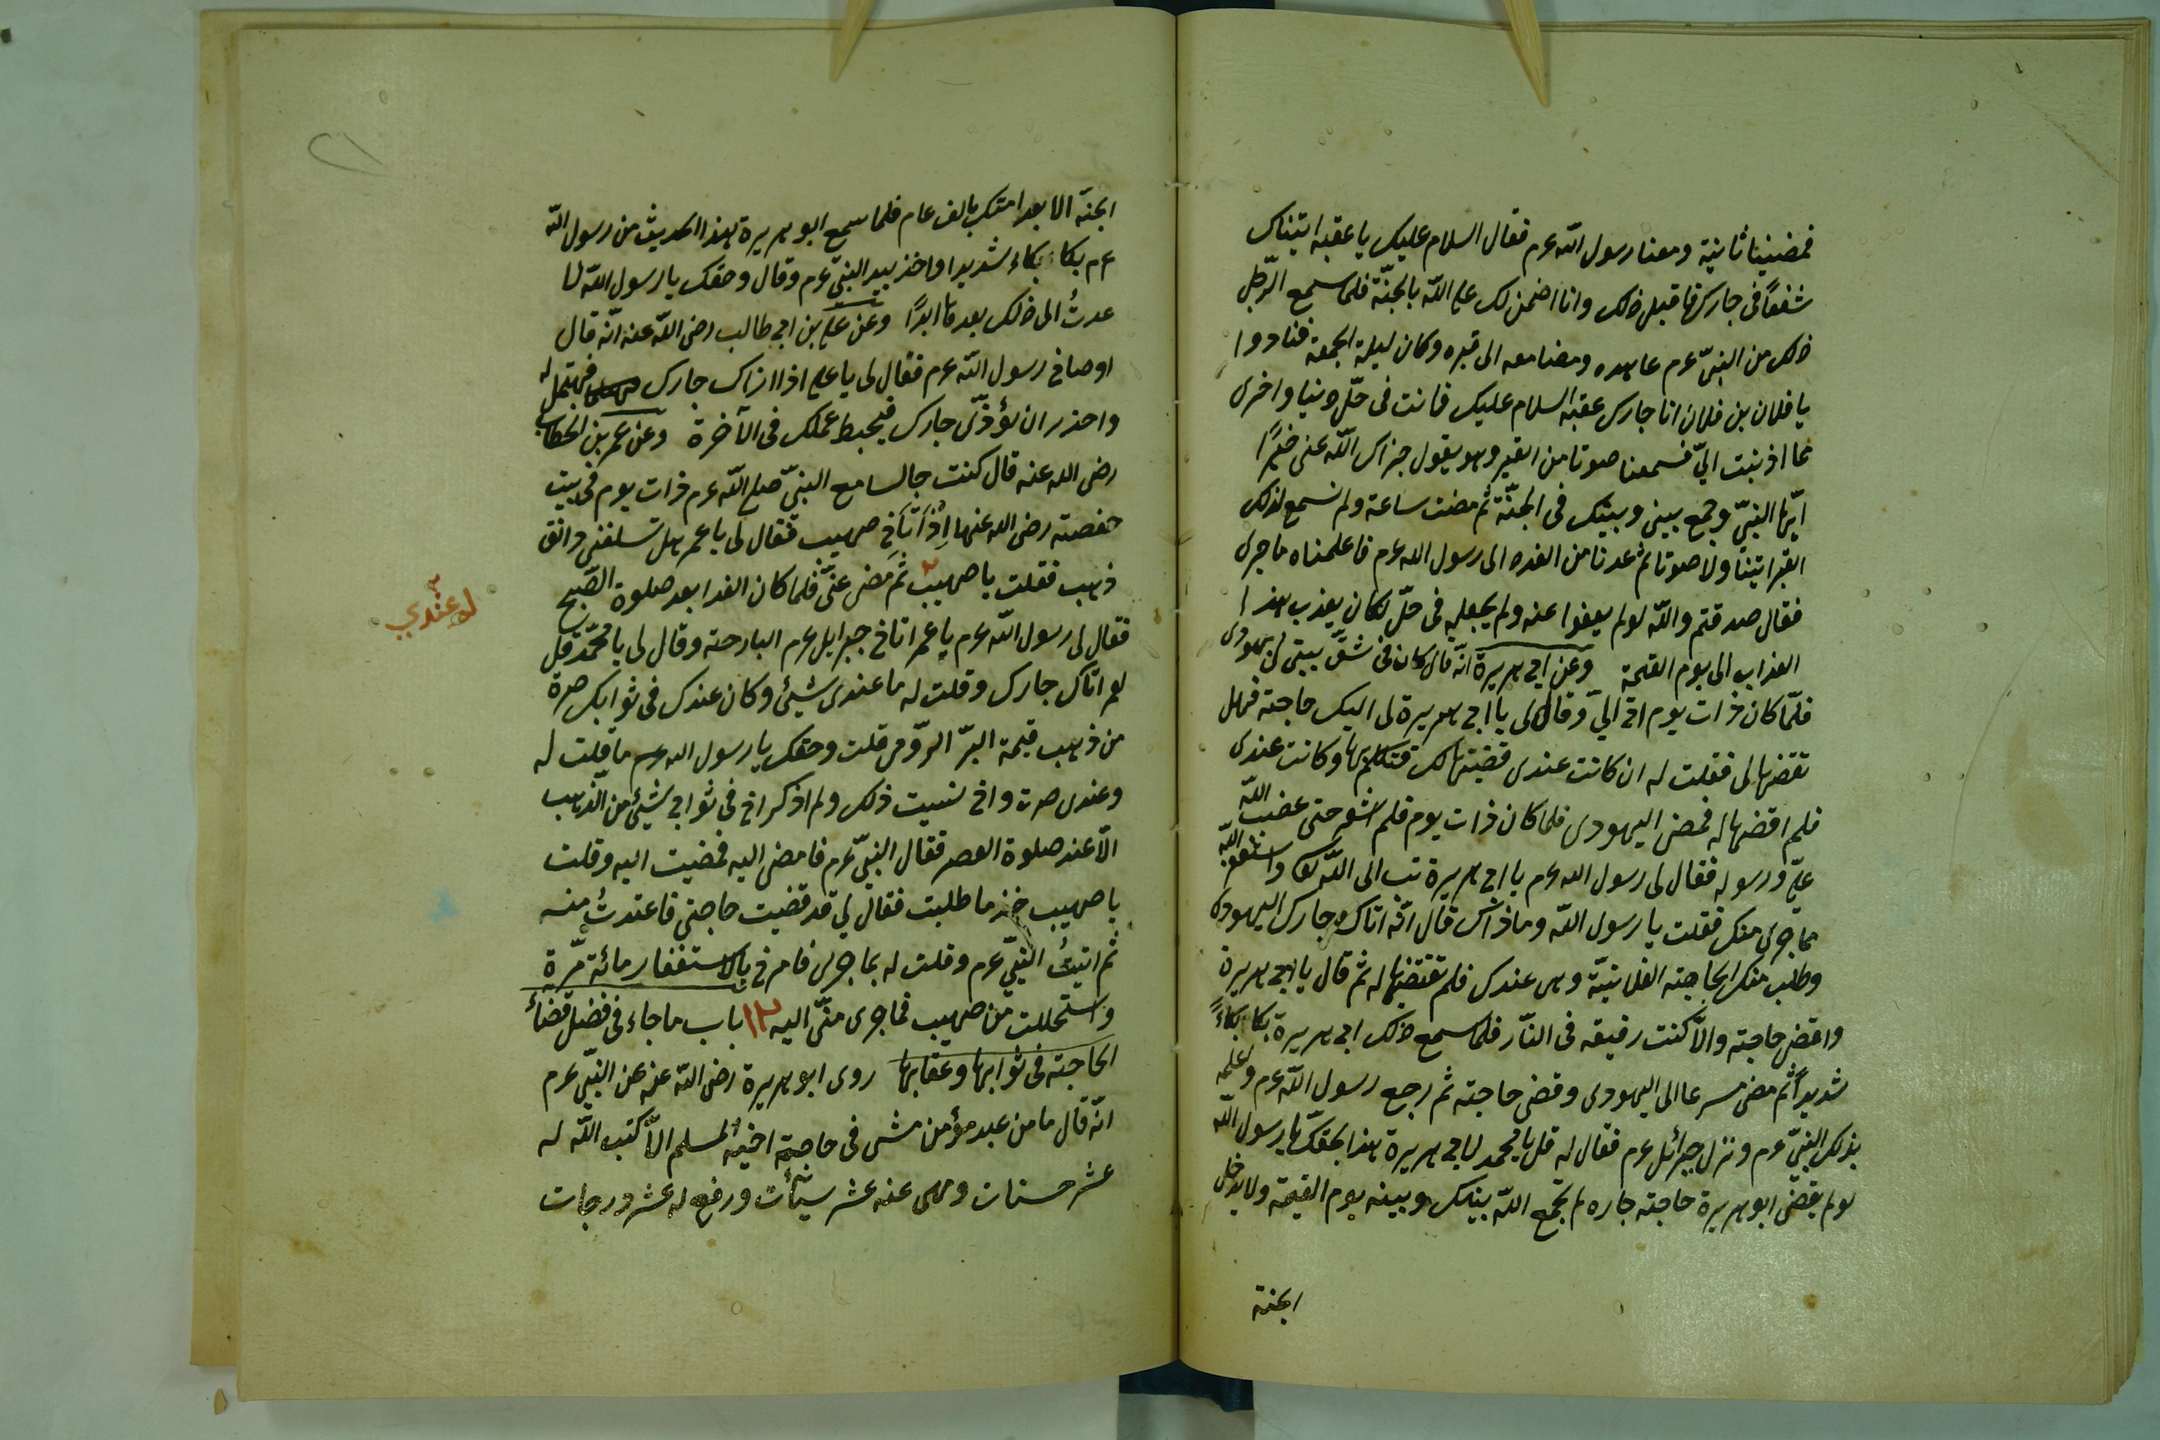 فمضينا ثانية ومعنا رسول الله عم فقال السلام عليك يا عقبة اتيناك
شفعاً فى جارك فاقبل ذلك وانا اضمن لك على الله بالجنّة فلما سمع الرّجل
ذلك من النبىّ عم عاهده ومضا معه الى قبره وكان ليلة الجمعة فنادوا
يا فلان بن فلان انا جارك عقبة السلام عليك فانت فى حلّ دنيا واخرى
مما اذنبت اليّ فسمعنا صوتا من القبر وهو يقول جزاك الله عنى خيرًا
ايّها النبيّ وجمع بينى وبينك فى الجنّة ثم مضت ساعة ولم نسمع لذلك
القبر انينا ولا صوتا ثم عدنا من الغده الى رسول الله عم فاعلمناه ما جرى
فقال صدقتم والله لو لم يعفوا عنه ولم يجعله فى حلّ لكان يعذب بهذا
العذاب الى يوم القيمة وعن ابى هريرة انّه قال كان فى شقّ بيتى لى يهودى
فلمّا كان ذات يوم اتى اليّ وقال لى يا ابى هريرة لى اليك حاجته فهل
تقضها لى فقلت له ان كانت عندى قضيتها لك فتكلم بها وكانت عندى
فلم اقضها له فمض اليهودى فلما كان ذات يوم فلم اشعر حتى غضب الله
عليّ ورسوله فقال لى رسول الله عم يا ابى هريرة تب الى الله واستغفر الله
مما جرى منك فقلت يا رسول الله وما ذاك قال انّه اتاك جارك اليهودى
وطلب منك الحاجته الفلانيّة وهى عندك فلم تقتضها له ثم قال يا ابى هريرة
واقض حاجته والاّ كنت رفيقه فى النّار فلما سمع ذلك ابى هريرة بكا بكاءً
شديداً ثم مضى مسرعا الى اليهودى وقضى حاجته ثم رجع رسول الله عم وعلمه
بذلك النبيّ عم ونزل جبرائل عم فقال له قل يا محمد لابى هريرة هذا بحقك يا رسول الله
لو لم يقضى ابو هريرة حاجته جاره لم يجمع الله بينك وبينه يوم القيمة ولا يدخل
الجنة
٢١
الجنّة الا بعد امتك بالف عام فلما سمع ابو هريرة هذا الحديث من رسول الله
عم بكا بكاء شديدا واخذ بيد النبىّ عم وقال وحقك يا رسول الله لا
عدتُ الى ذلك بعدها ابدًا وعن على بن ابى طالب رضى الله عنه انّه قال
اوصانى رسول الله عم فقال لى يا على اذا اذاك جارك فتحمل له
واحذر ان تؤذّى جارك فيحبط عملك فى الآخرة وعن عمر بن الخطاب
رضى الله عنه قال كنت جالسا مع النبىّ صلع الله عم ذات يوم فى بيت
حفصته رضى الله عنها اذ اتانى صهيب فقال لى يا عمر هل تسلفنى دانق
ذهب فقلت يا صهيب ثم مض عنّى فلما كان الغد ابعد صلوة الصّبح
لا عندي
فقال لى رسول الله عم يا عمر اتانى جبرايل عم البارحته وقال لى يا محمّد قل
لعمر اتاك جارك وقلت له ما عندى شيئ وكان عندك فى ثوابك صرة
من ذهب قيمة البرّ الرّومى قلت وحقك يا رسول الله عم ما قلت له
وعندى صرت وانى نسيت ذلك ولم اذكر انى فى ثوابى شيئ من الذهب
الاّ عند صلوة العصر فقال النبىّ عم فامض اليه فمضيت اليه وقلت
يا صهيب خذ ما طلبت فقال لى قد قضيت حاجتى فاعتدرتُ منه
ثم اتيتُ النبىّ عم وقلت له بما جرى فامرنى بالاستغفار مائة مرّة
واستحللت من صهيب فما جرى منّى اليه ١٢ باب ما جاء فى فضل قضاء
الحاجته فى ثوابها وعقابها روى ابو هريرة رضى الله عنه عن النبىّ عم
انّه قال ما من عبد مؤمن مشى فى حاجة اخيه المسلم الاّ كتب الله له
عشر حسنات ومحى عنه عشر سيّأت ورفع له عشر درجات